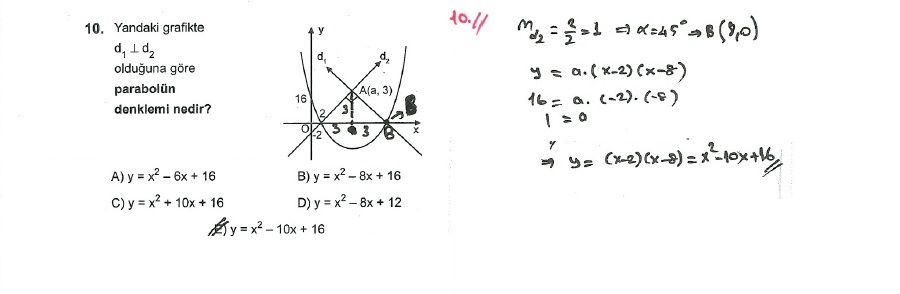 10. Yandaki grafikte
d₁ ⊥ d₂
olduğuna göre
parabolün
denklemi nedir?
y
d₁
d₂
A(a, 3)
16
3
2
B
O
-2
3
3
8
x
A) y = x² – 6x + 16
B) y = x² – 8x + 16
C) y = x² + 10x + 16
D) y = x² – 8x + 12
E) y = x² – 10x + 16
10.//
m_d₂ = 2/2 = 1 ⇒ α = 45° ⇒ B(8,0)
y = a.(x-2)(x-8)
16 = a.(-2).(-8)
1 = a
⇒ y = (x-2)(x-8) = x²-10x+16